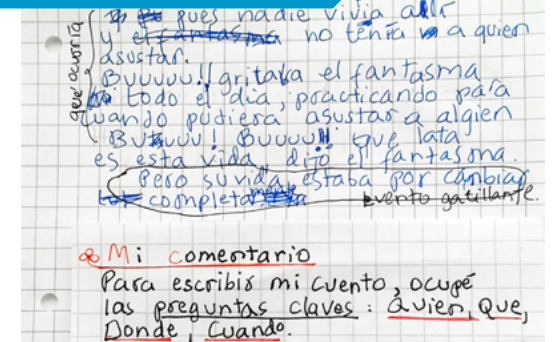 pues nadie vivía allí
y el fantasma no tenía a quien
asustar.
BUUUUU!! gritaba el fantasma
todo el día, practicando para
cuando pudiera asustar a algien
BUUUUU! BUUUU!! que lata
es esta vida, dijo el fantasma.
Pero su vida estaba por cambiar
completamente
evento gatillante.
qué ocurría
Mi comentario
Para escribir mi cuento, ocupé
las preguntas claves: Quien, Que,
Donde, Cuando.